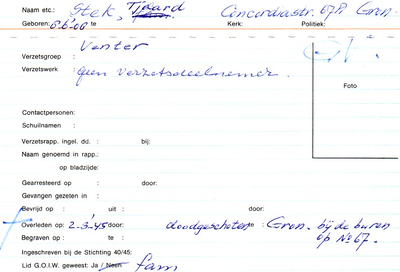 Naam etc.: Stek, Tjaard Concordiastr. 67A Gron.
Geboren: 6.6.00 te Kerk: Politiek:
Venter
Verzetsgroep :
Verzetswerk : geen verzetsdeelnemer.
Foto
Contactpersonen:
Schuilnamen :
Verzetsrapp. ingel. dd. : bij:
Naam genoemd in rapp.:
op bladzijde:
Gearresteerd op : door:
Gevangen gezeten in :
Bevrijd op : uit : door:
Overleden op: 2.3.'45 door: doodgeschoten Gron. bij de buren
Begraven op : te : op No 67.
Ingeschreven bij de Stichting 40/45:
Lid G.O.I.W. geweest: Ja / Neen fam